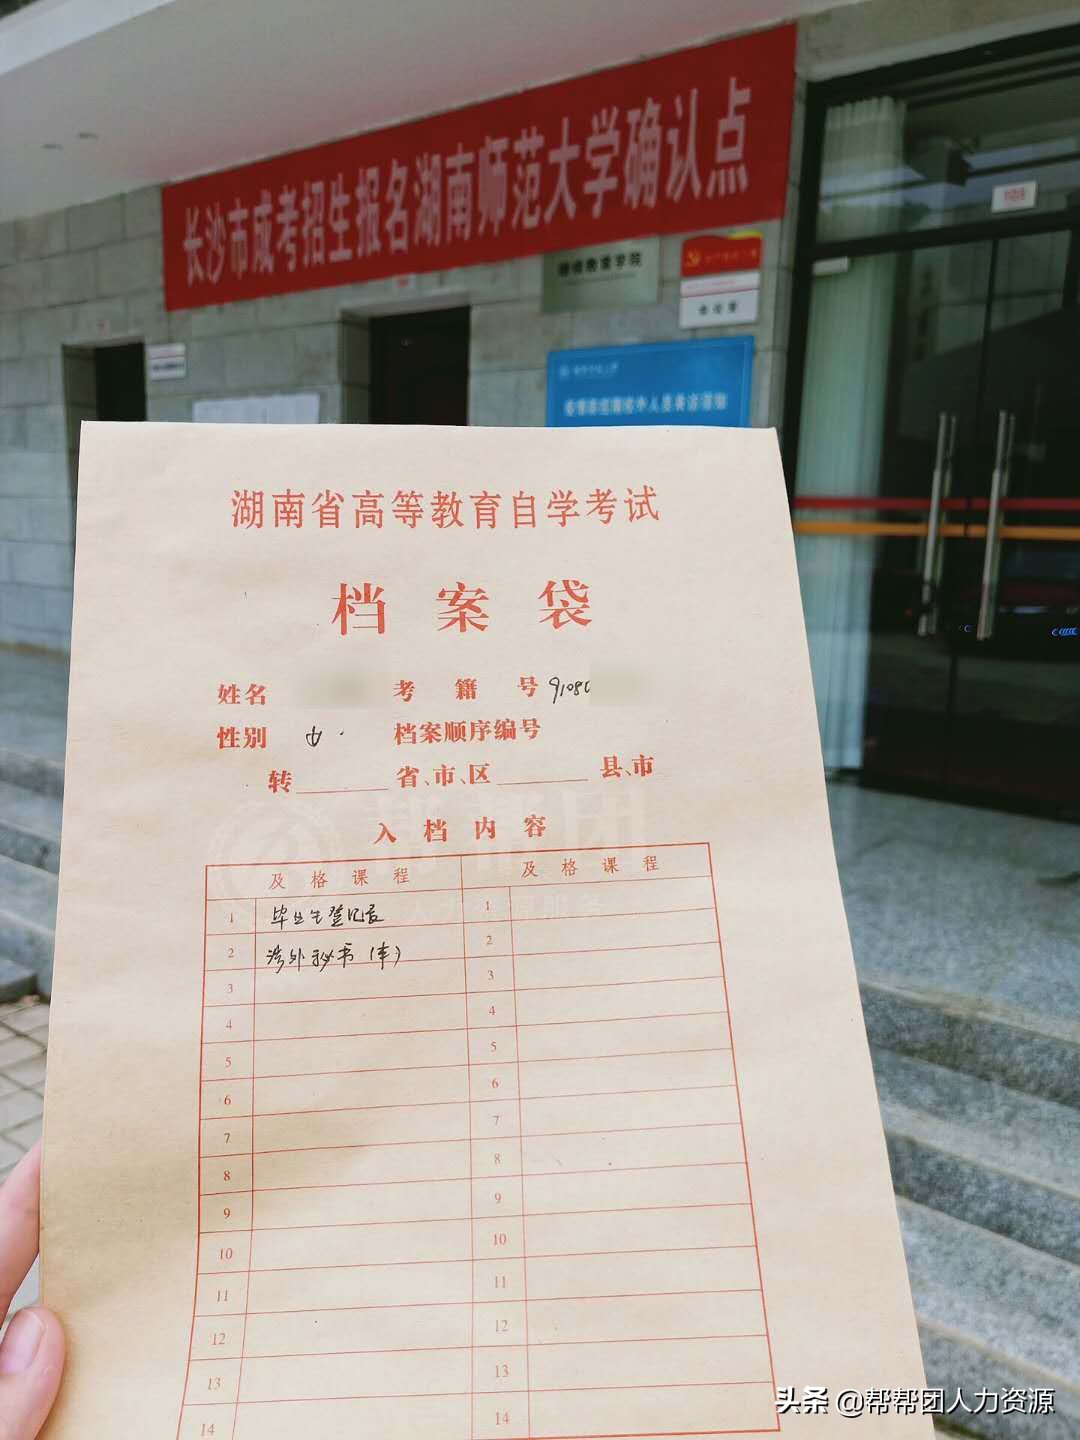 长沙市成考招生报名湖南师范大学确认点
继续教育学院
疫情防控期间校外人员来访须知
湖南省高等教育自学考试
档案袋
姓名 考籍号 9108
性别 女. 档案顺序编号
转______省、市、区______县、市
入档内容
及格课程 及格课程
1 毕业生登记表 1
2 涉外秘书(本) 2
3 3
4 4
5 5
6 6
7 7
8 8
9 9
10 10
11 11
12 12
13 13
14 14
帮帮团
头条 @帮帮团人力资源